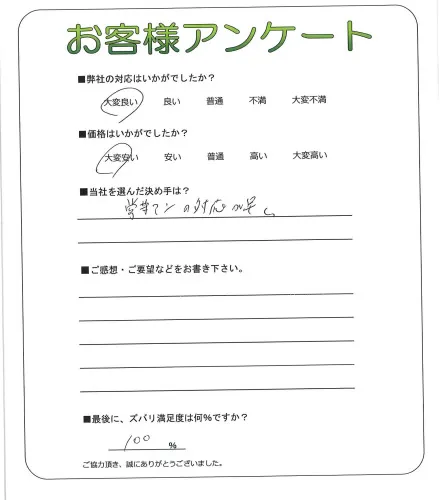 お客様アンケート
■弊社の対応はいかがでしたか?
大変良い 良い 普通 不満 大変不満
■価格はいかがでしたか?
大変安い 安い 普通 高い 大変高い
■当社を選んだ決め手は?
営業マンの対応が早い
■ご感想・ご要望などをお書き下さい。
■最後に、ズバリ満足度は何%ですか?
100 %
ご協力頂き、誠にありがとうございました。